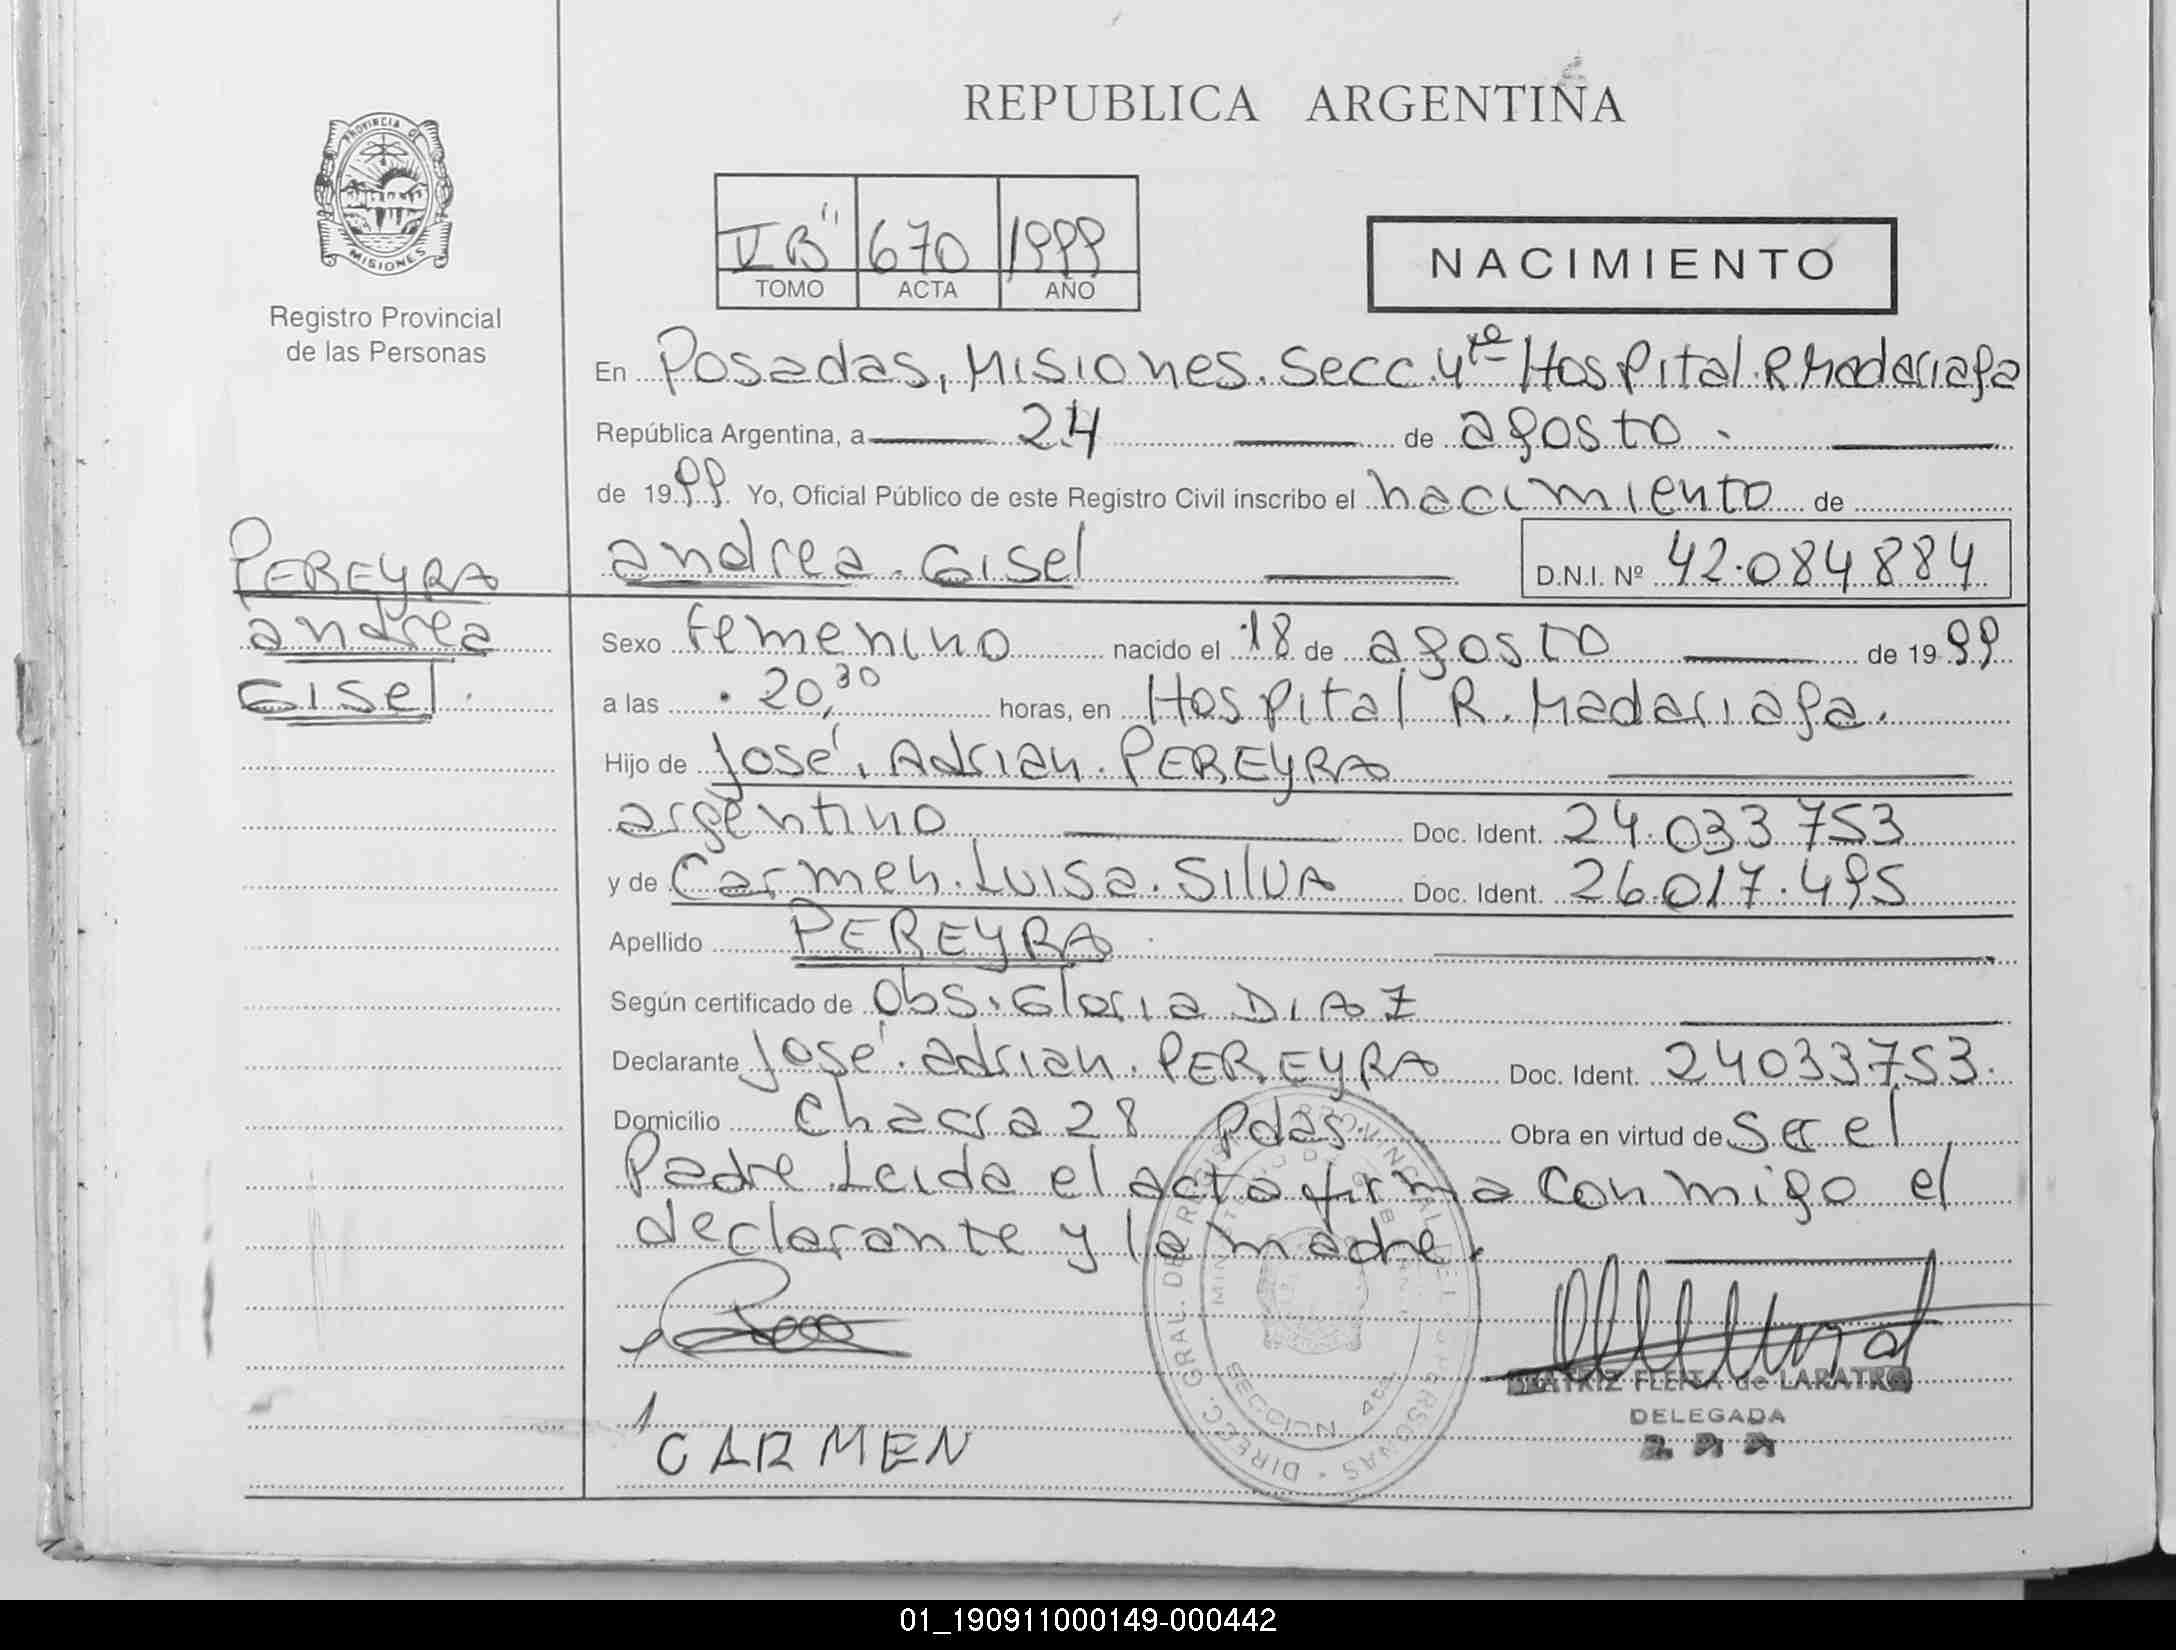 REPUBLICA ARGENTINA
PROVINCIA DE
MISIONES
Registro Provincial
de las Personas
V B" 670 1999
TOMO ACTA AÑO
NACIMIENTO
En Posadas, Misiones. Secc. 4ta Hospital R Madariaga
República Argentina, a 24 de agosto.
de 1999. Yo, Oficial Público de este Registro Civil inscribo el nacimiento de
andrea. Gisel D.N.I. Nº 42.084884
PEREYRA
andrea
Gisel.
Sexo femenino nacido el 18 de agosto de 1999
a las 20,30 horas, en Hospital R. Madariaga.
Hijo de José. Adrian. PEREYRA
argentino Doc. Ident. 24.033.753
y de Carmen. Luisa. SILVA Doc. Ident. 26.017.495
Apellido PEREYRA
Según certificado de Obs. Gloria DIAZ
Declarante José. adrian. PEREYRA Doc. Ident. 24033753.
Domicilio Chacra 28 Pdas. Obra en virtud de Ser el
Padre Leida el acta firma Conmigo el
declarante y la madre.
DIRECC. GRAL. DE REGISTRO PROVINCIAL DE PERSONAS
SECCION 4ta.
BEATRIZ FLEITA de LARATRO
DELEGADA
CARMEN
01_190911000149-000442